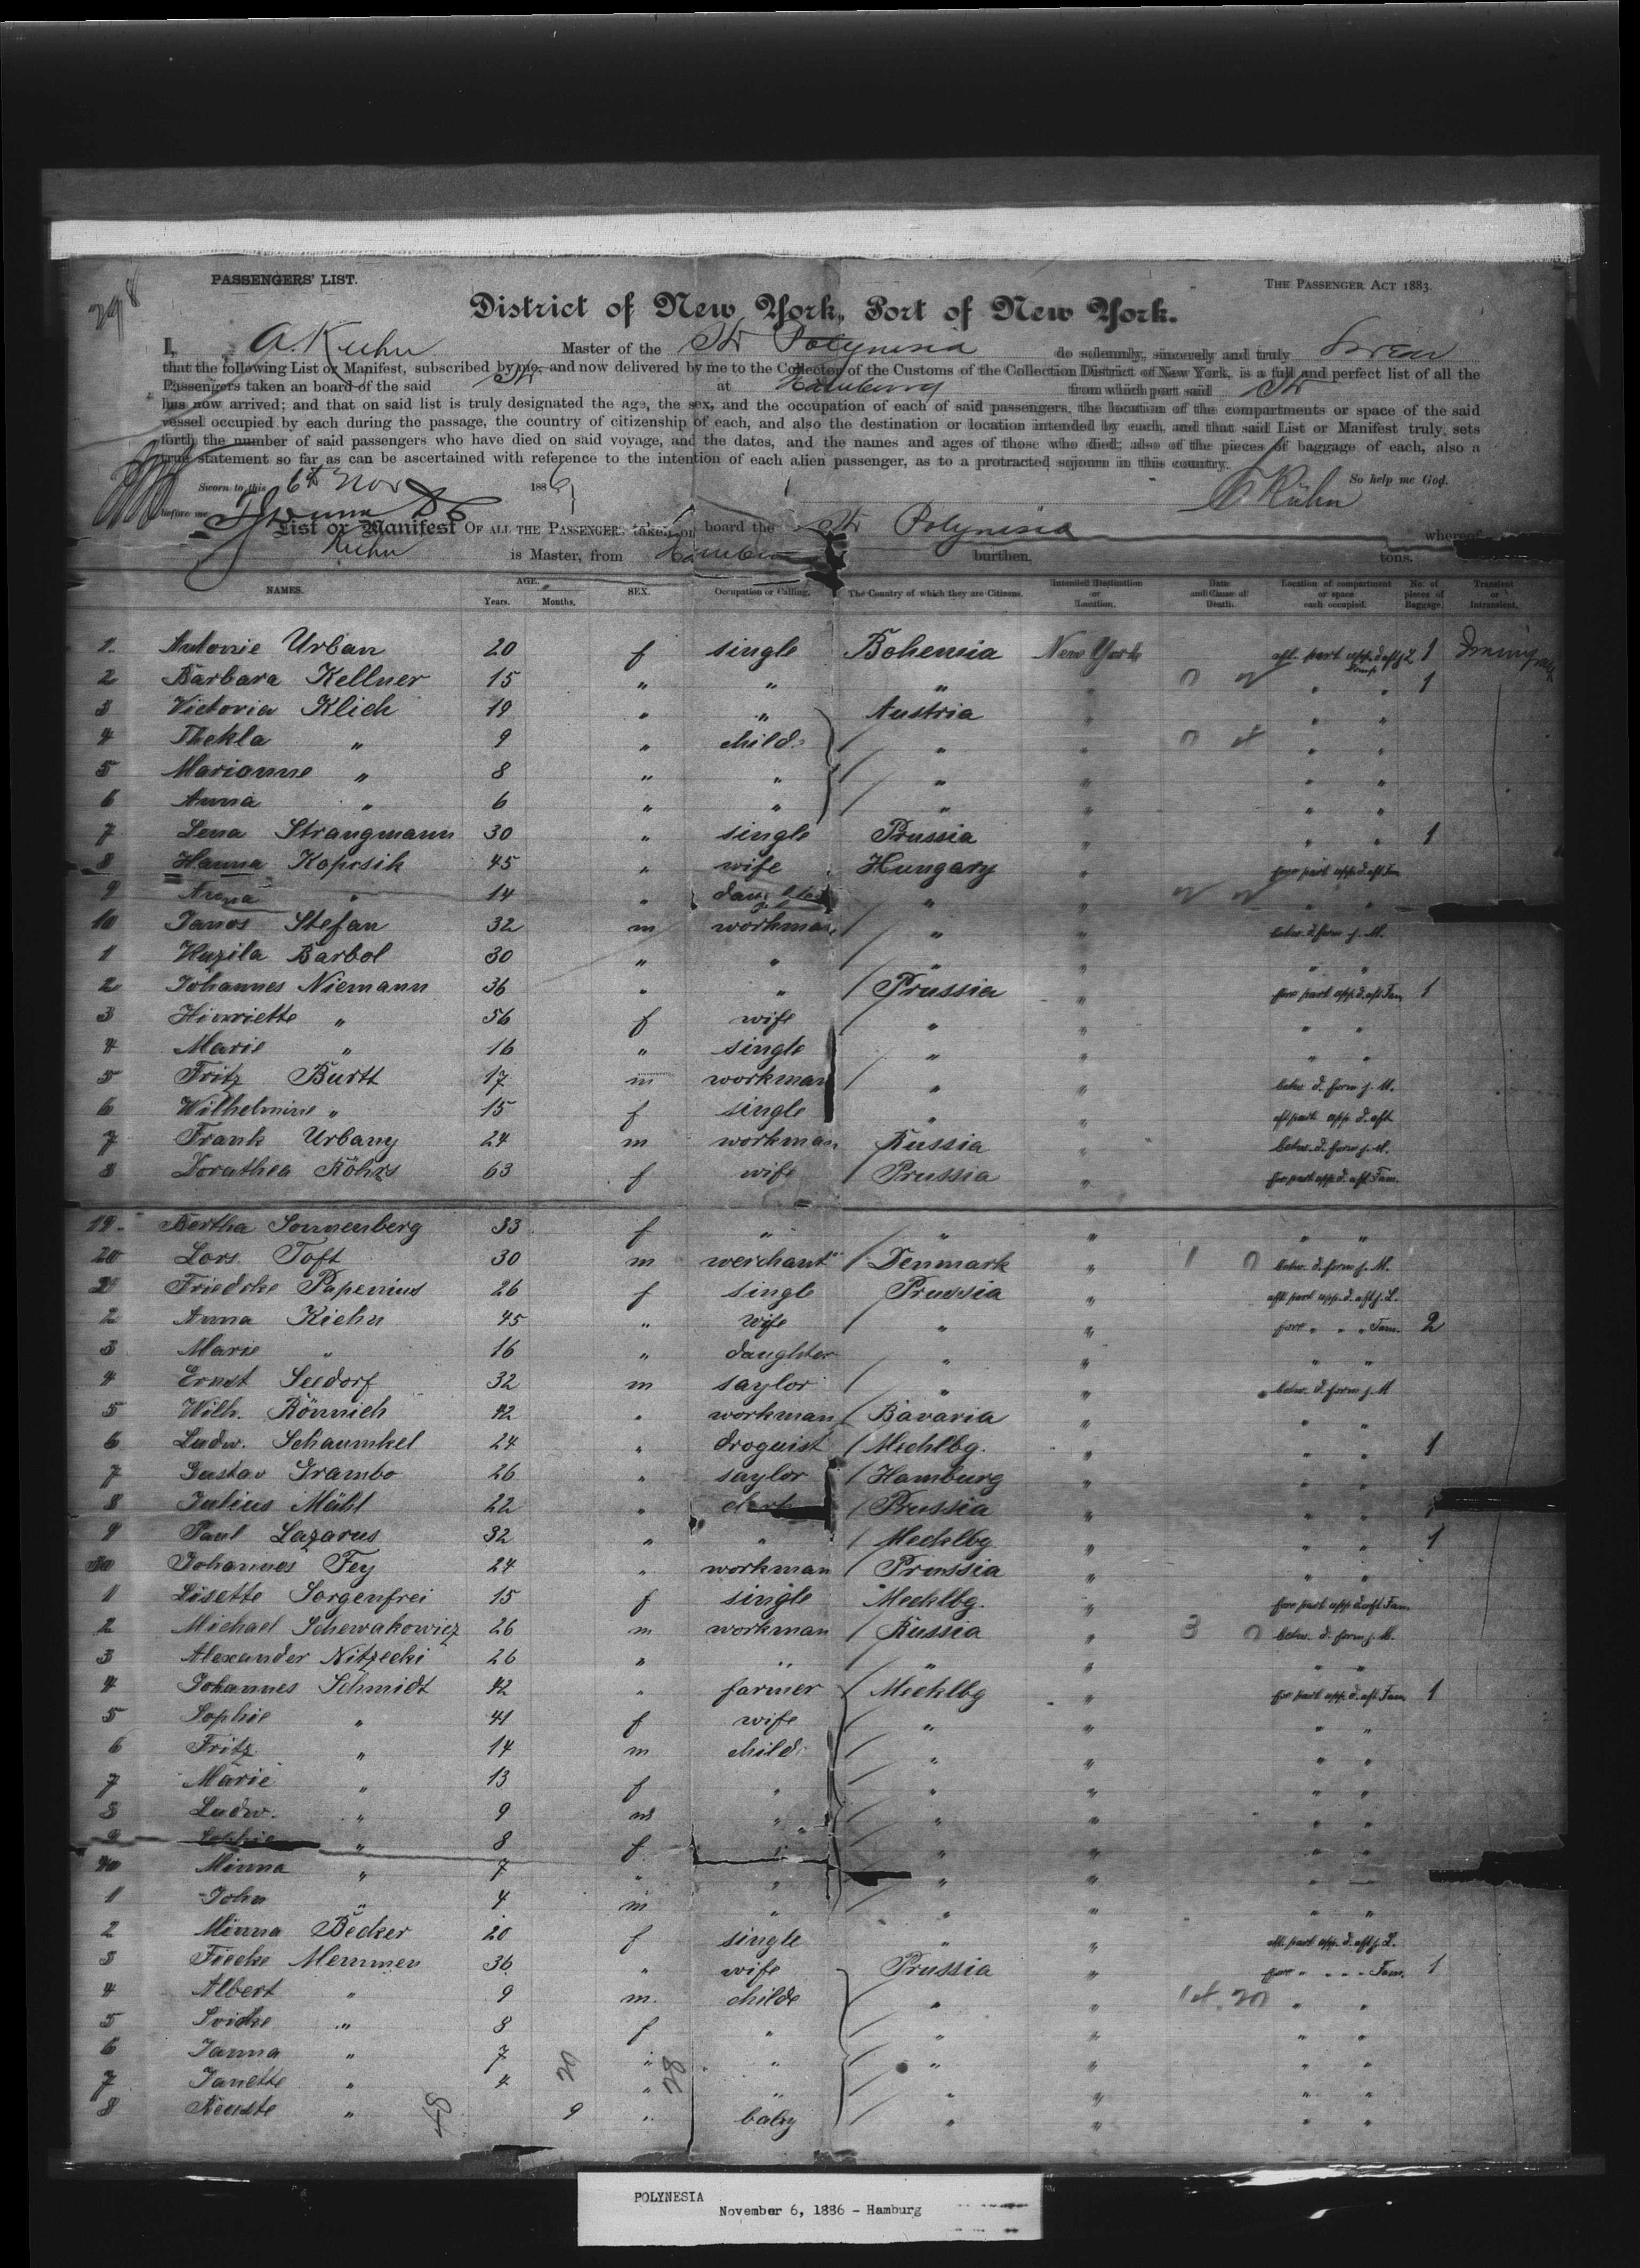 298
PASSENGERS' LIST. THE PASSENGER ACT 1883.
District of New York, Port of New York.
I, A. Kuhn Master of the Str Polynesia do solemnly, sincerely and truly Swear
that the following List or Manifest, subscribed by me, and now delivered by me to the Collector of the Customs of the Collection District of New York, is a full and perfect list of all the
Passengers taken on board of the said Str at Hamburg from which port said Str
has now arrived; and that on said list is truly designated the age, the sex, and the occupation of each of said passengers, the location of the compartments or space of the said
vessel occupied by each during the passage, the country of citizenship of each, and also the destination or location intended by each, and that said List or Manifest truly sets
forth the number of said passengers who have died on said voyage, and the dates, and the names and ages of those who died; also of the pieces of baggage of each, also a
true statement so far as can be ascertained with reference to the intention of each alien passenger, as to a protracted sojourn in this country.
Sworn to this 6th Nov 1886 So help me God.
before me A Kühn
List or Manifest OF ALL THE PASSENGERS taken on board the Str Polynesia whereof
Kuhn is Master, from Hamburg burthen, tons.
NAMES. AGE. Years. Months. SEX. Occupation or Calling. The Country of which they are Citizens. Intended Destination or Location. Date and Cause of Death. Location of compartment or space each occupied. No. of pieces of Baggage. Transient or Intransient.
1. Antonie Urban 20 f single Bohemia New York aft. part upp. d. aft j. L 1
2 Barbara Kellner 15 " " " " " " 1
3 Victoria Klich 19 " " Austria " " "
4 Thekla " 9 " child: " " " "
5 Marianne " 8 " " " " " "
6 Anna " 6 " " " " " "
7 Lena Strangmann 30 " single Prussia " " " 1
8 Hanna Kopcsik 45 " wife Hungary " fore part upp. d. aft Fam
9 Anna " 14 " daughter " " " "
10 Janos Stefan 32 m workman " " betw. d. forw j. M.
1 Huzila Barbol 30 " " " " " "
2 Johannes Niemann 36 " " Prussia " fore part upp. d. aft Fam 1
3 Hinriette " 56 f wife " " " "
4 Marie " 16 " single " " " "
5 Fritz Burtt 17 m workman " " betw d. forw j. M.
6 Wilhelmine " 15 f single " " aft part upp d. aft
7 Frank Urbany 24 m workman Russia " betw. d. forw j. M.
8 Dorathea Röhrs 63 f wife Prussia " fore part upp d. aft Fam.
19. Bertha Sonnenberg 33 f " " " " "
20 Lors Toft 30 m merchant Denmark " betw. d. forw j. M.
21 Friedrke Papenius 26 f single Prussia " aft part upp. d. aft j. L.
2 Anna Kiehn 45 " wife " " fore " " " Fam. 2
3 Marie " 16 " daughter " " " "
4 Ernst Seedorf 32 m saylor " " betw. d. forw j. M
5 Wilh. Rönnich 42 " workman Bavaria " " "
6 Ludw. Schaumkel 24 " droguist Mecklbg. " " " 1
7 Gustav Grambo 26 " saylor Hamburg " " "
8 Julius Mähl 22 " clerk Prussia " " "
9 Paul Lazarus 32 " " Mecklbg " " " 1
30 Johannes Fey 24 " workman Prussia " " "
1 Lisette Sorgenfrei 15 f single Mecklbg. " fore part upp d. aft Fam.
2 Michael Schewakowicz 26 m workman Russia " betw. d. forw j. M.
3 Alexander Nitzecki 26 " " " " " "
4 Johannes Schmidt 42 " farmer Mecklbg " fore part upp. d. aft Fam 1
5 Sophie " 41 f wife " " " "
6 Fritz " 14 m child: " " " "
7 Marie " 13 f " " " " "
8 Ludw. " 9 m " " " " "
9 Sophie " 8 f " " " " "
40 Minna " 7 " " " " "
1 John " 4 m " " " " "
2 Minna Becker 20 f single " " aft part upp. d. aft j. L.
3 Fiecke Memmen 36 " wife Prussia " fore " " " " Fam. 1
4 Albert " 9 m. childr " " " "
5 " 8 f " " " " "
6 Janna " 7 " " " " " "
7 Janette " 4 " " " " " "
8 " 9 " baby " " " "
48 20 28
POLYNESIA
November 6, 1886 - Hamburg